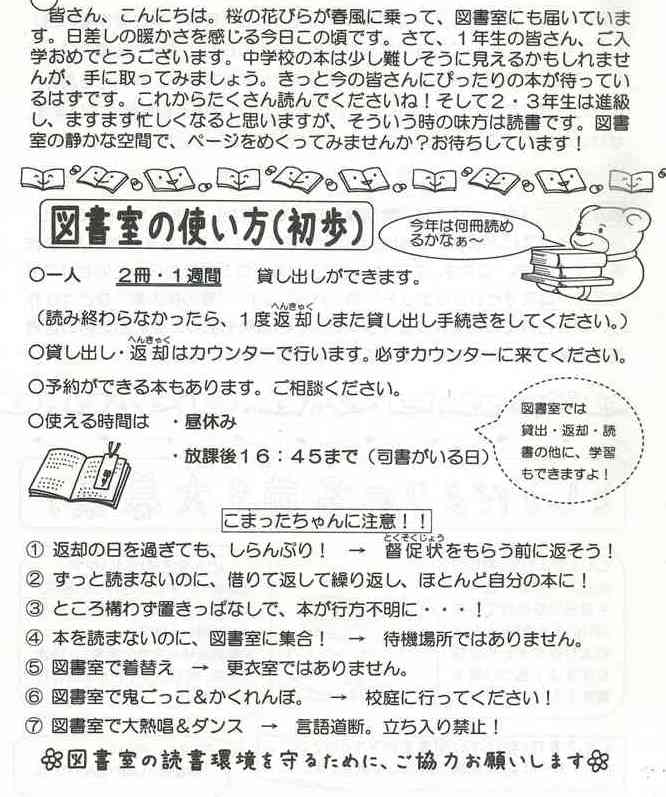 皆さん、こんにちは。桜の花びらが春風に乗って、図書室にも届いていま
す。日差しの暖かさを感じる今日この頃です。さて、1年生の皆さん、ご入
学おめでとうございます。中学校の本は少し難しそうに見えるかもしれませ
んが、手に取ってみましょう。きっと今の皆さんにぴったりの本が待ってい
るはずです。これからたくさん読んでくださいね！そして2・3年生は進級
し、ますます忙しくなると思いますが、そういう時の味方は読書です。図書
室の静かな空間で、ページをめくってみませんか？お待ちしています！
図書室の使い方(初歩)
今年は何冊読め
るかなぁ～
○一人 2冊・1週間 貸し出しができます。
へんきゃく
(読み終わらなかったら、1度返却しまた貸し出し手続きをしてください。)
へんきゃく
○貸し出し・返却はカウンターで行います。必ずカウンターに来てください。
○予約ができる本もあります。ご相談ください。
○使える時間は ・昼休み
・放課後16：45まで(司書がいる日)
図書室では
貸出・返却・読
書の他に、学習
もできますよ！
こまったちゃんに注意！！
とくそくじょう
① 返却の日を過ぎても、しらんぷり！ → 督促状をもらう前に返そう！
② ずっと読まないのに、借りて返して繰り返し、ほとんど自分の本に！
③ ところ構わず置きっぱなしで、本が行方不明に・・・！
④ 本を読まないのに、図書室に集合！ → 待機場所ではありません。
⑤ 図書室で着替え → 更衣室ではありません。
⑥ 図書室で鬼ごっこ＆かくれんぼ。 → 校庭に行ってください！
⑦ 図書室で大熱唱＆ダンス → 言語道断。立ち入り禁止！
図書室の読書環境を守るために、ご協力お願いします